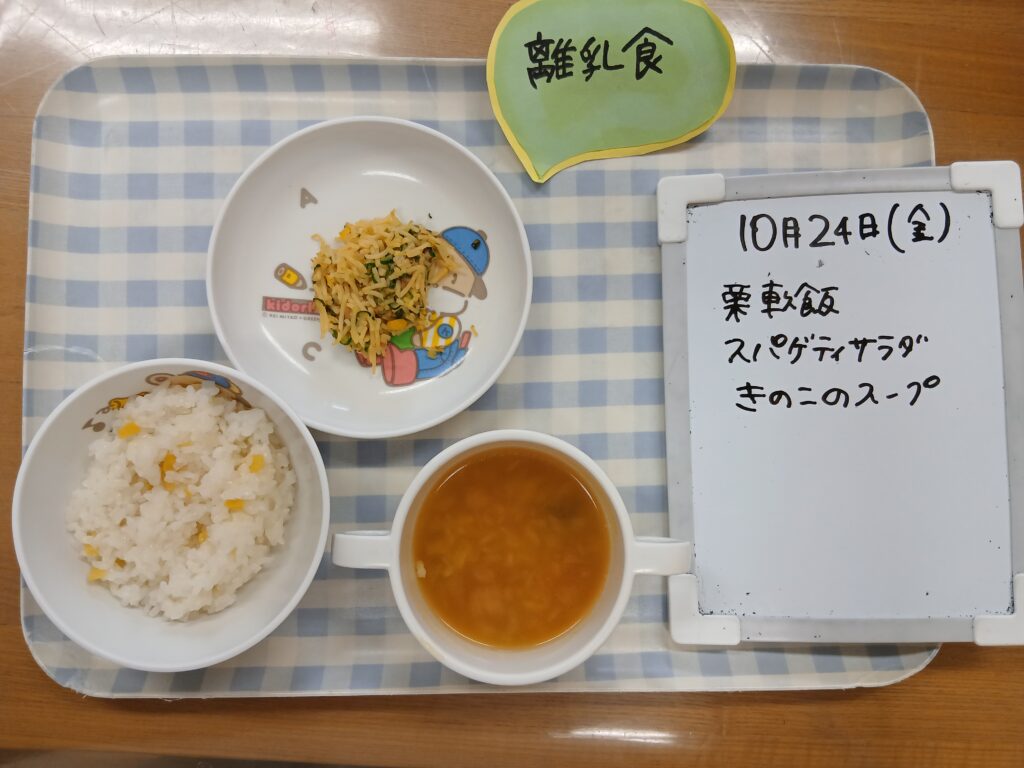 離乳食
10月24日(金)
栗軟飯
スパゲティサラダ
きのこのスープ
A
C